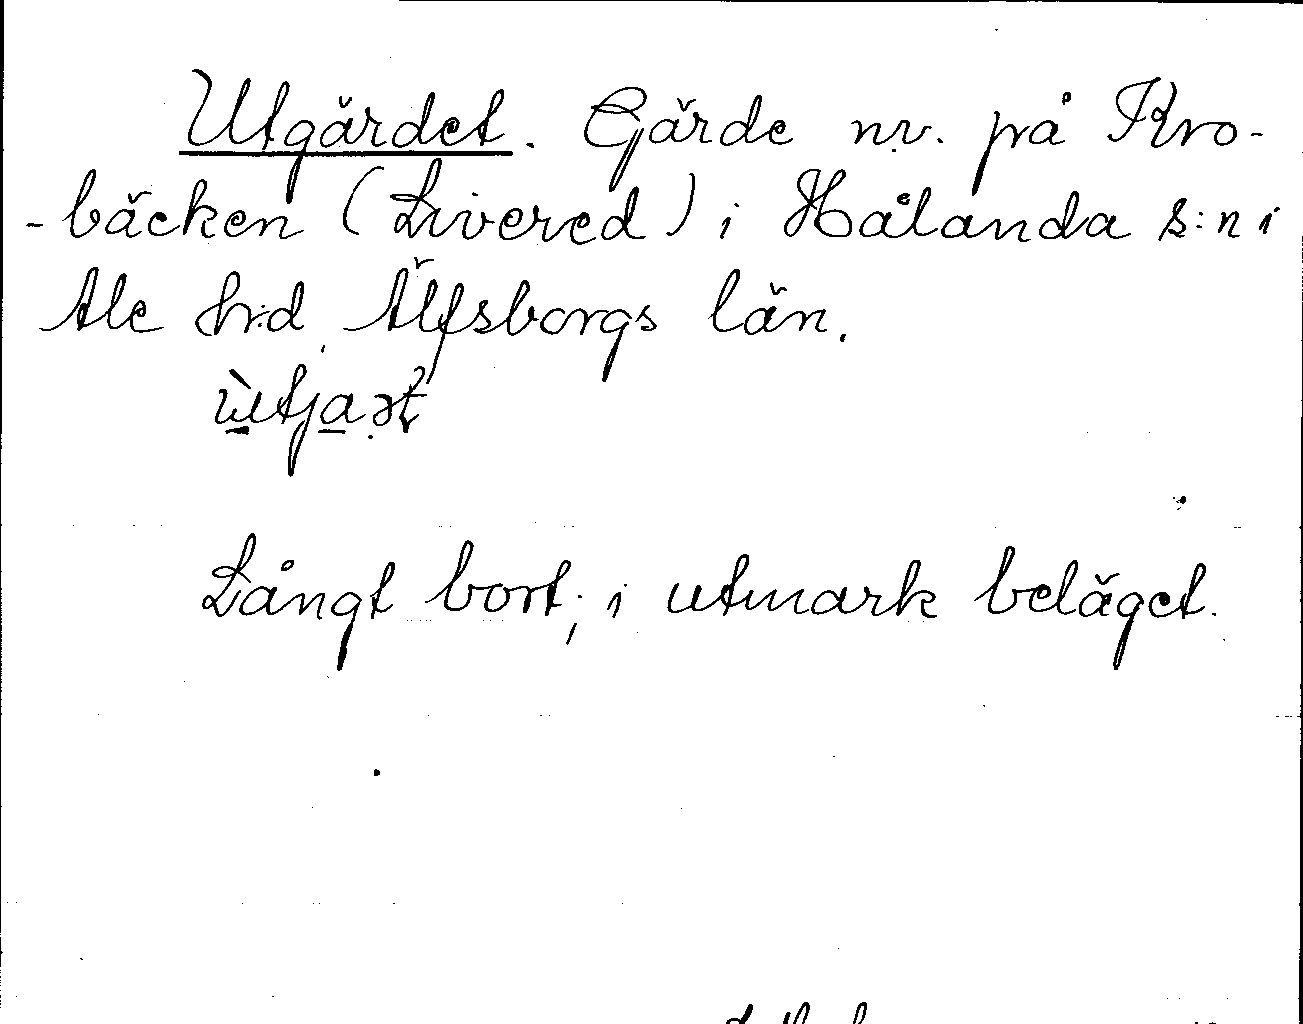 Utgärdet. Gärde nv. på Kro-
-bäcken (Livered) i Hålanda s:n i
Ale hrd. Älfsborgs län.
ùtjaət
Långt bort, i utmark beläget.